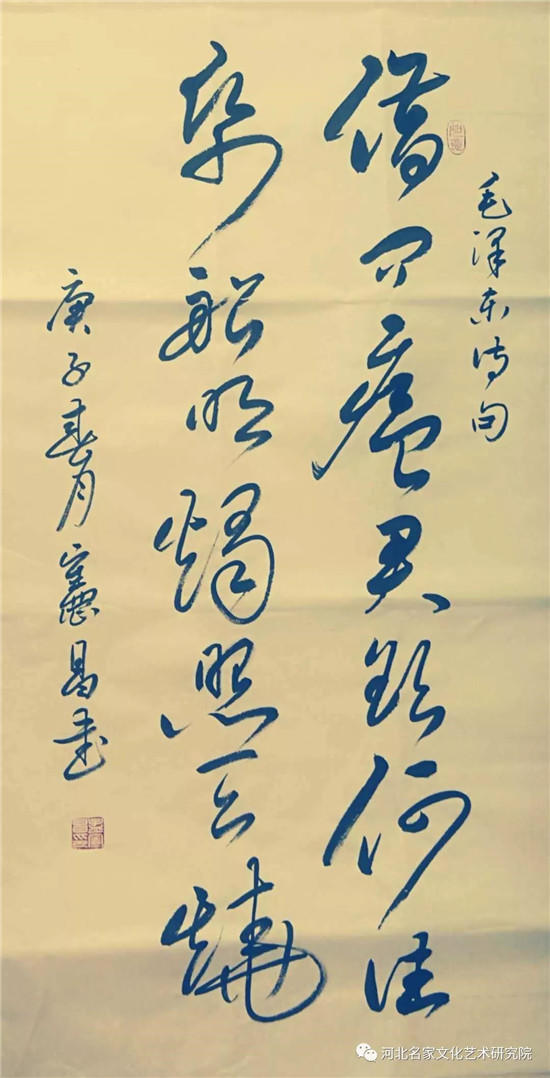 毛泽东诗句
借问瘟君欲何往
纸船明烛照天烧
庚子春月憲昌书
河北名家文化艺术研究院